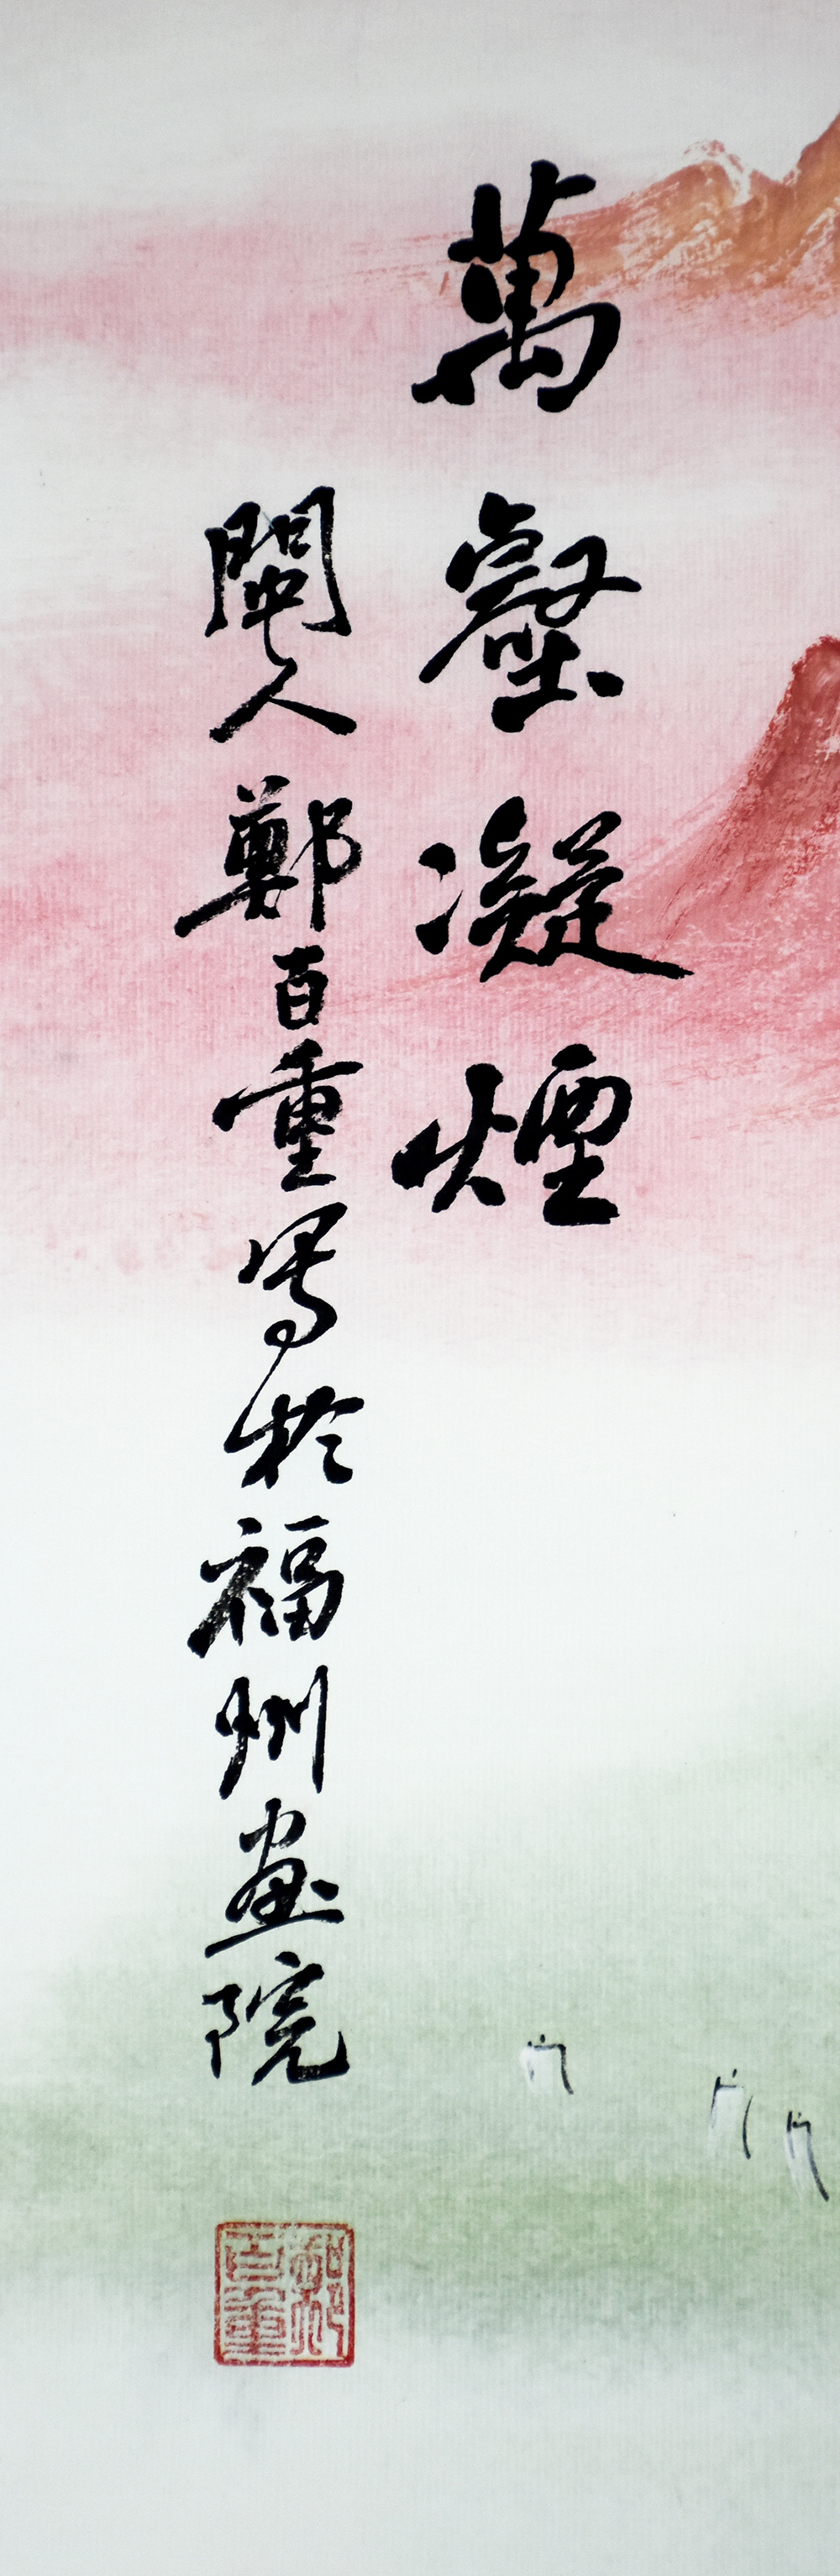 萬壑凝煙
閩人鄭百重写於福州畫院
鄭百重